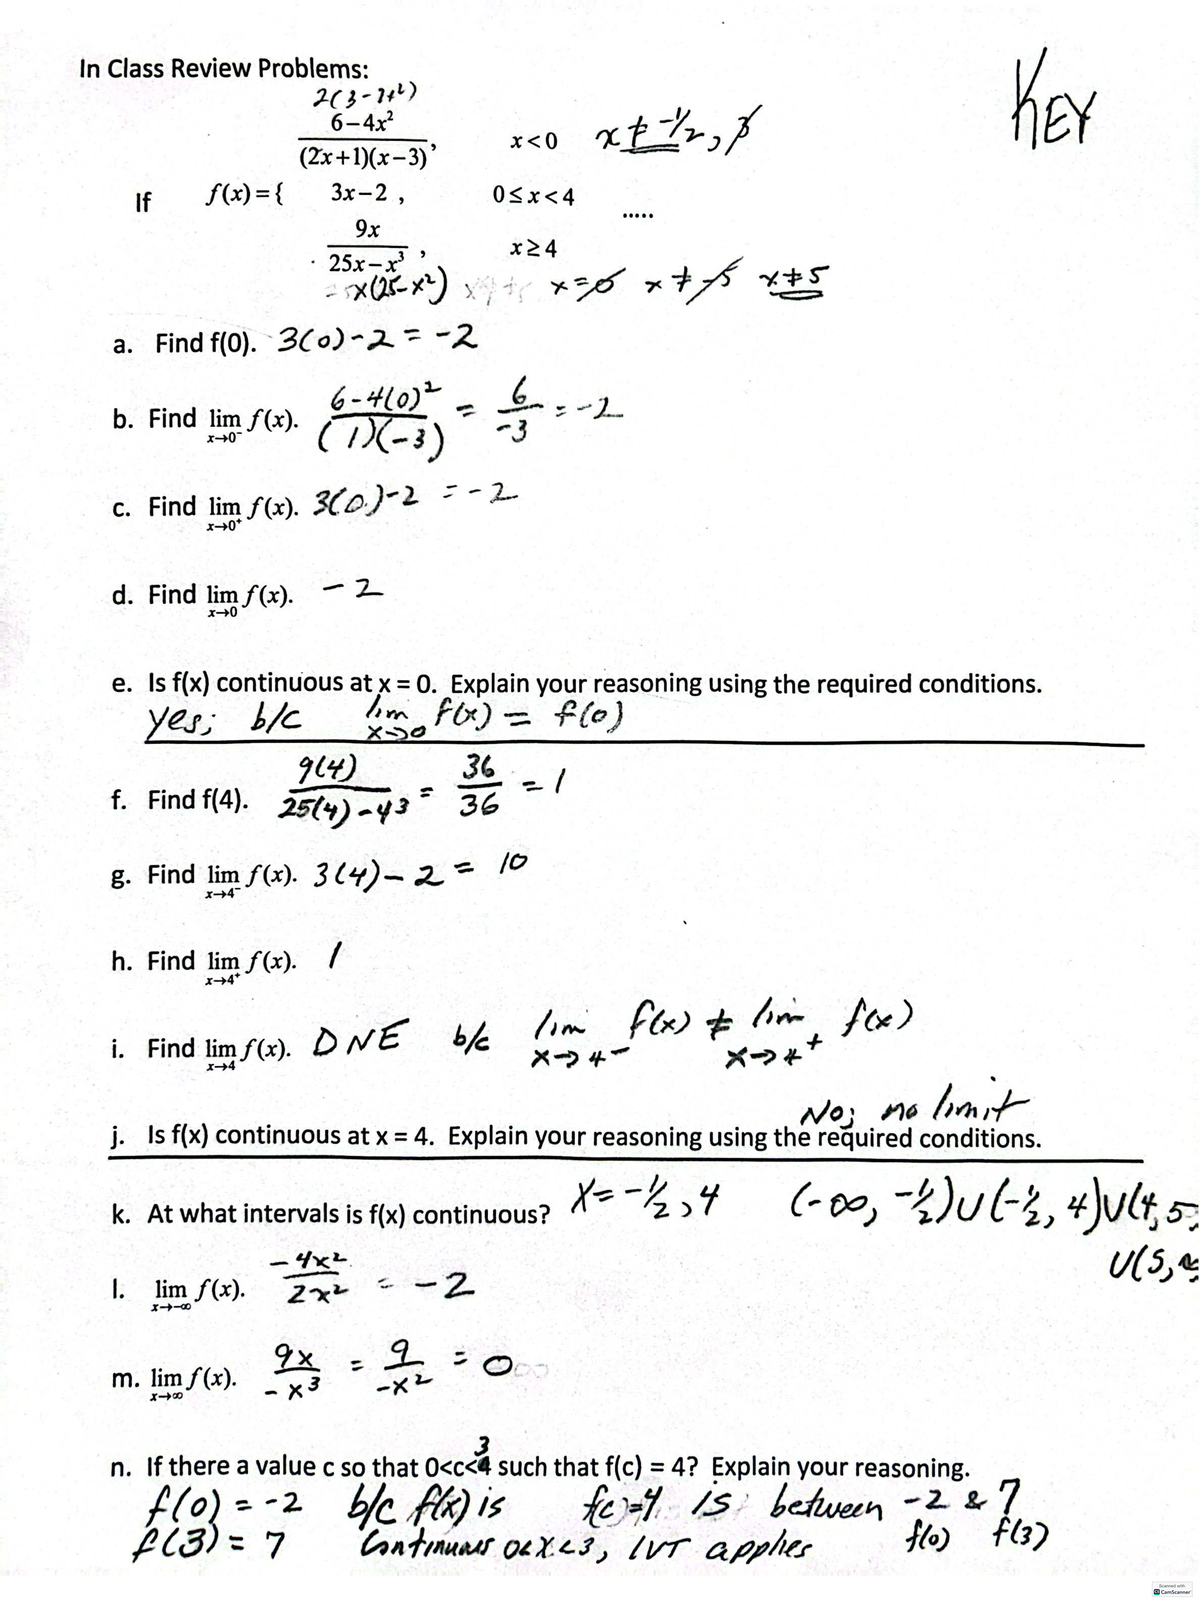 In Class Review Problems:
KEY
2(3-2x²)
6-4x²
(2x+1)(x-3) , x<0 x ≠ -1/2, 3
If f(x)={ 3x-2 , 0≤x<4 .....
9x
25x-x³ , x≥4
x(25-x²) x=0 x≠-5 x≠5
a. Find f(0). 3(0)-2 = -2
b. Find lim x→0⁻ f(x). 6-4(0)² / (1)(-3) = 6/-3 = -2
c. Find lim x→0⁺ f(x). 3(0)-2 = -2
d. Find lim x→0 f(x). -2
e. Is f(x) continuous at x = 0. Explain your reasoning using the required conditions.
yes; b/c lim x→0 f(x) = f(0)
f. Find f(4). 9(4) / 25(4)-43 = 36/36 = 1
g. Find lim x→4⁻ f(x). 3(4)-2 = 10
h. Find lim x→4⁺ f(x). 1
i. Find lim x→4 f(x). DNE b/c lim x→4⁻ f(x) ≠ lim x→4⁺ f(x)
No; no limit
j. Is f(x) continuous at x = 4. Explain your reasoning using the required conditions.
k. At what intervals is f(x) continuous? X=-1/2, 4 (-∞, -1/2)∪(-1/2, 4)∪(4, 5
∪(5,
l. lim x→-∞ f(x). -4x²/2x² = -2
m. lim x→∞ f(x). 9x/-x³ = 9/-x² = 0
3
n. If there a value c so that 0<c<4 such that f(c) = 4? Explain your reasoning.
f(0) = -2 b/c f(x) is f(c)=4 is between -2 & 7
f(3) = 7 Continuous 0<x<3, IVT applies f(0) f(3)
Scanned with
CS CamScanner